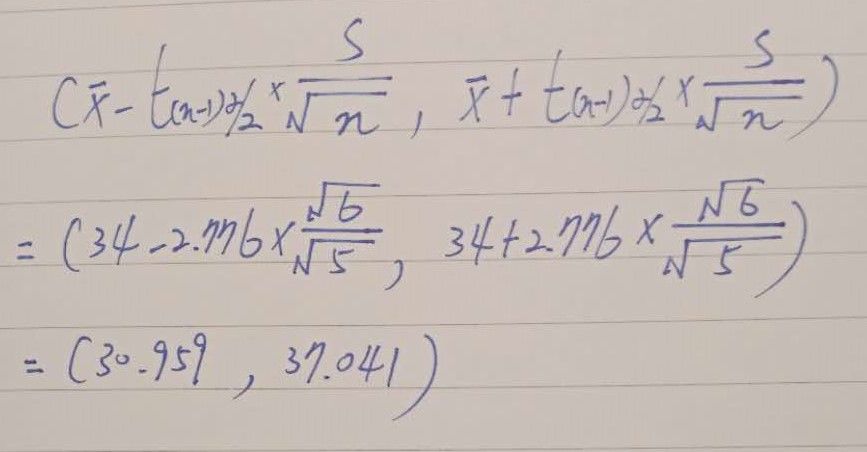 (x̄ - t(n-1)α/2 × S/√n , x̄ + t(n-1)α/2 × S/√n)
= (34 - 2.776 × √6/√5 , 34 + 2.776 × √6/√5)
= (30.959 , 37.041)